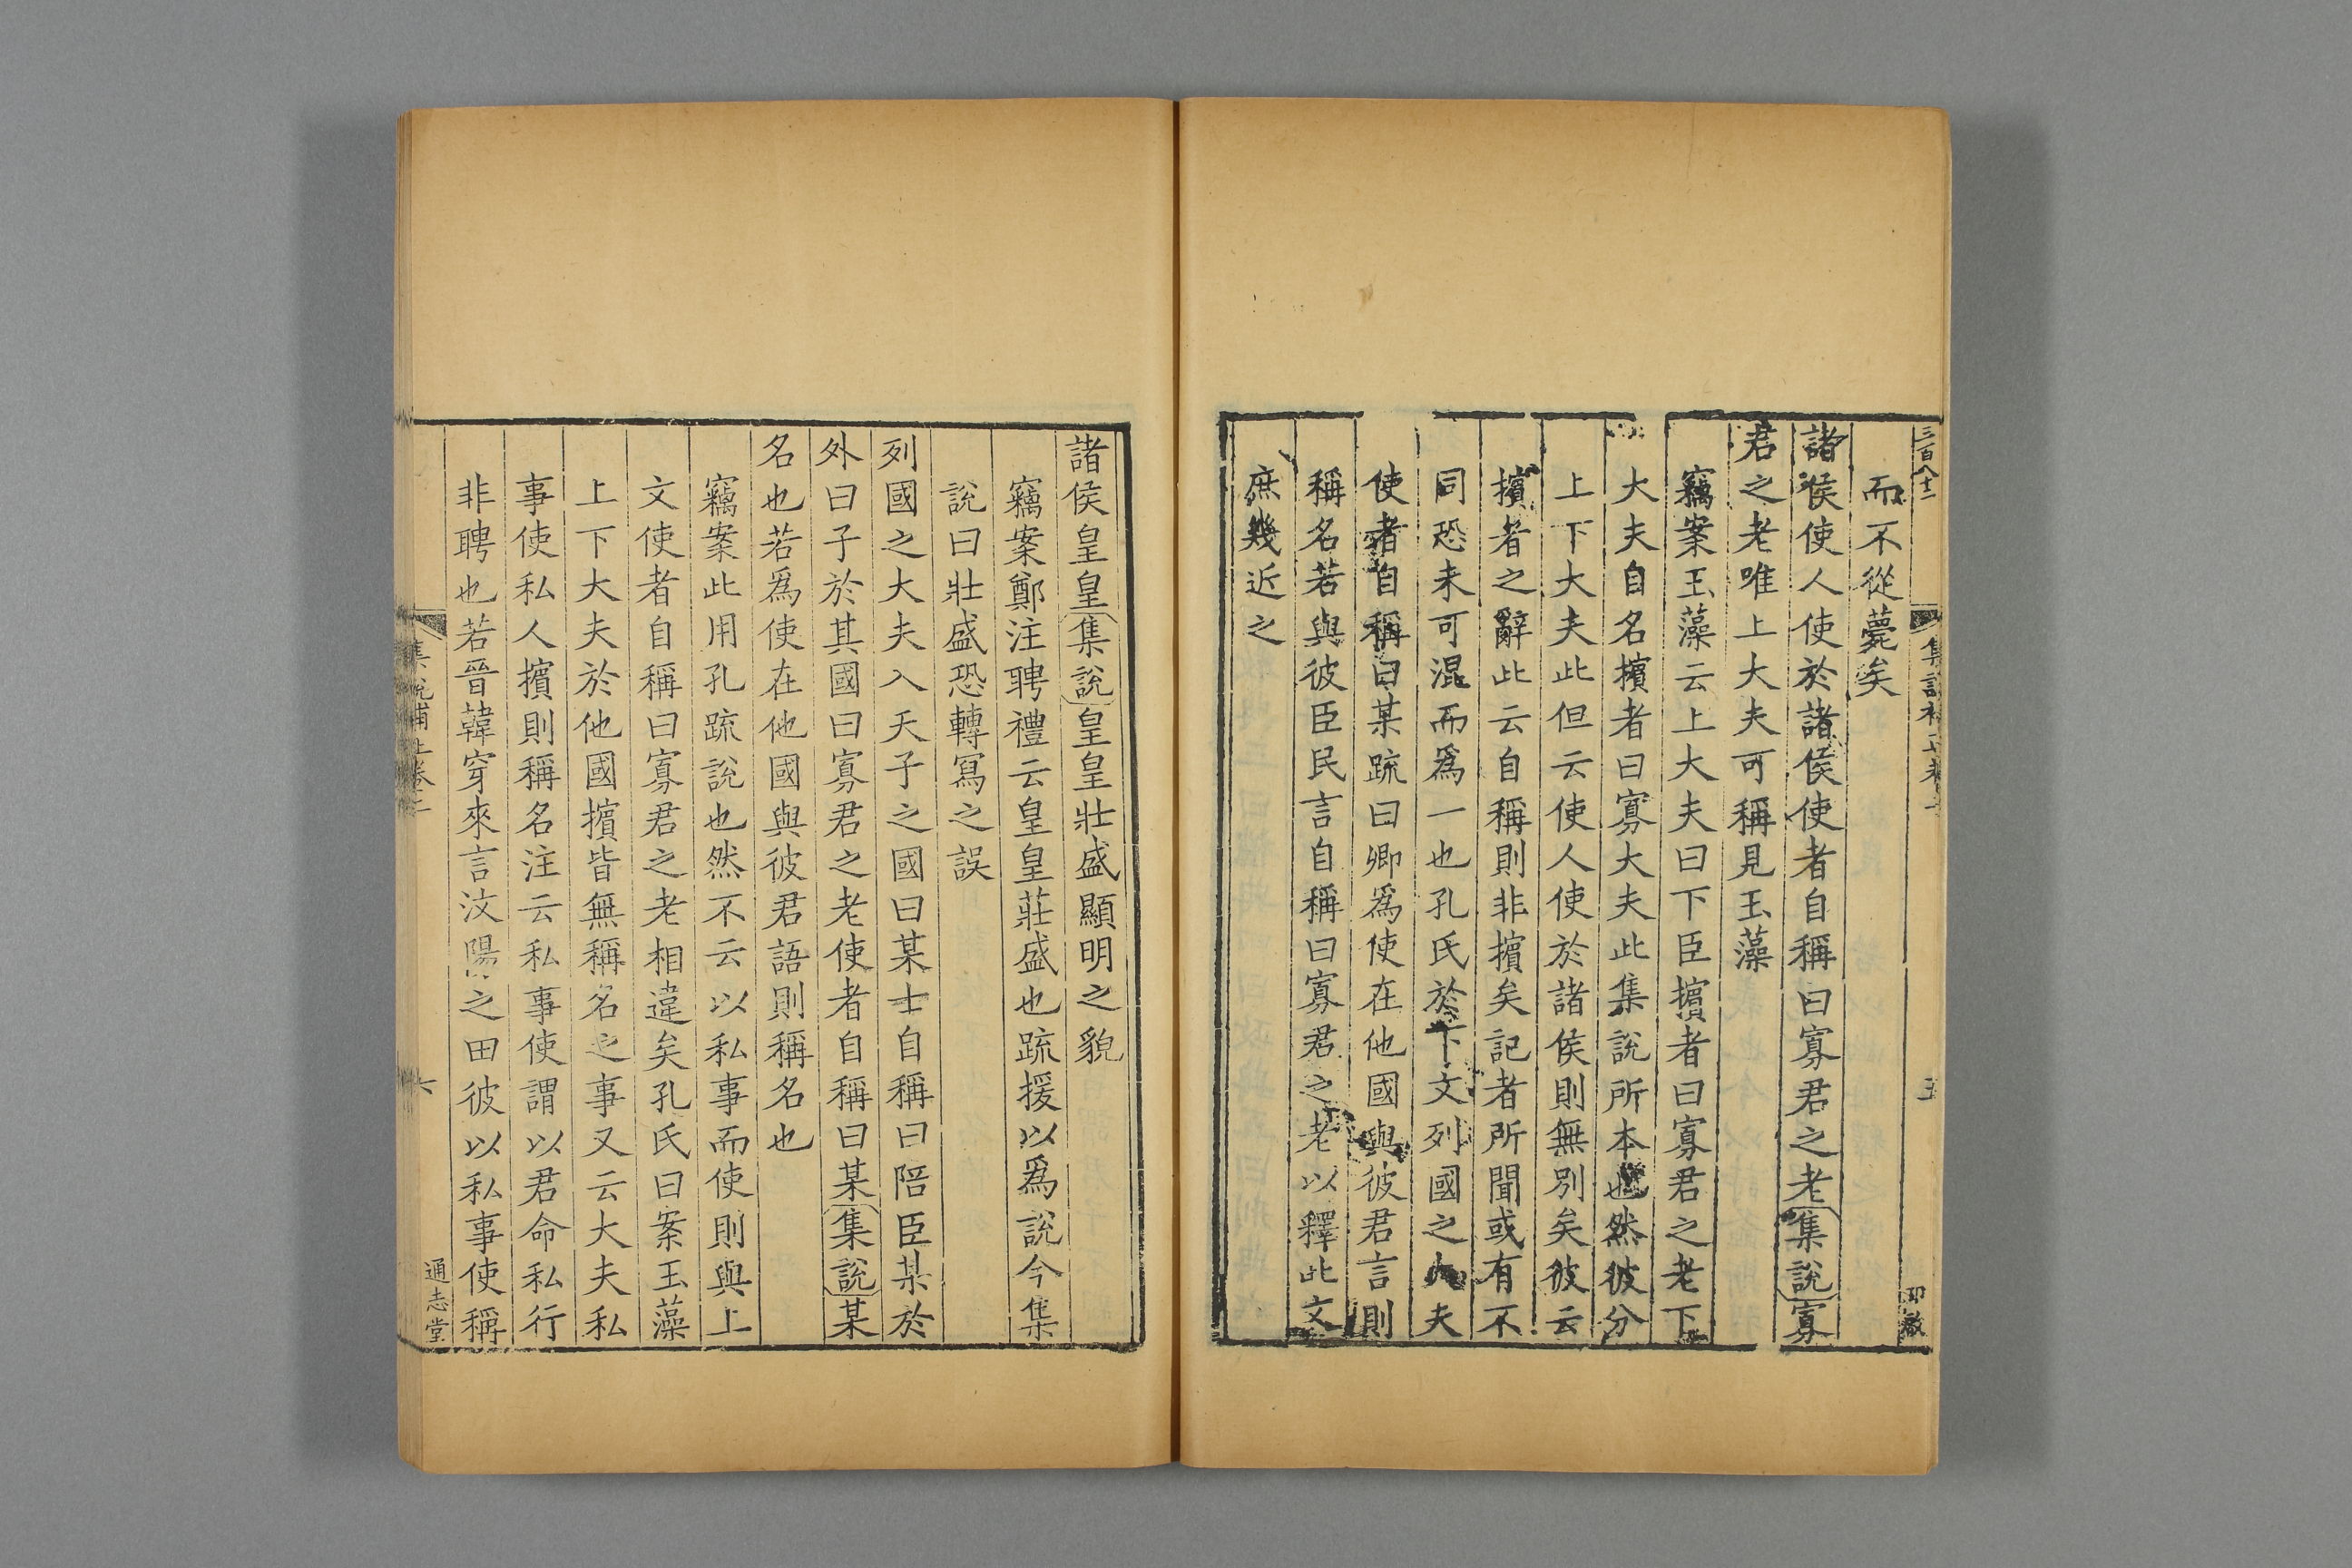 三百八十二
而不從薨矣
諸侯使人使於諸侯使者自稱曰寡君之老集說寡
君之老唯上大夫可稱見玉藻
竊案玉藻云上大夫曰下臣擯者曰寡君之老下
大夫自名擯者曰寡大夫此集說所本也然彼分
上下大夫此但云使人使於諸侯則無別矣彼云
擯者之辭此云自稱則非擯矣記者所聞或有不
同恐未可混而爲一也孔氏於下文列國之大夫
使者自稱曰某疏曰卿爲使在他國與彼君言則
稱名若與彼臣民言自稱曰寡君之老以釋此文
庶幾近之
諸侯皇皇集說皇皇壯盛顯明之貌
竊案鄭注聘禮云皇皇莊盛也疏援以爲說今集
說曰壯盛恐轉寫之誤
列國之大夫入天子之國曰某士自稱曰陪臣某於
外曰子於其國曰寡君之老使者自稱曰某集說某
名也若爲使在他國與彼君語則稱名也
竊案此用孔疏說也然不云以私事而使則與上
文使者自稱曰寡君之老相違矣孔氏曰案玉藻
上下大夫於他國擯皆無稱名之事又云大夫私
事使私人擯則稱名注云私事使謂以君命私行
非聘也若晉韓穿來言汶陽之田彼以私事使稱
集說補正卷二
六
通志堂